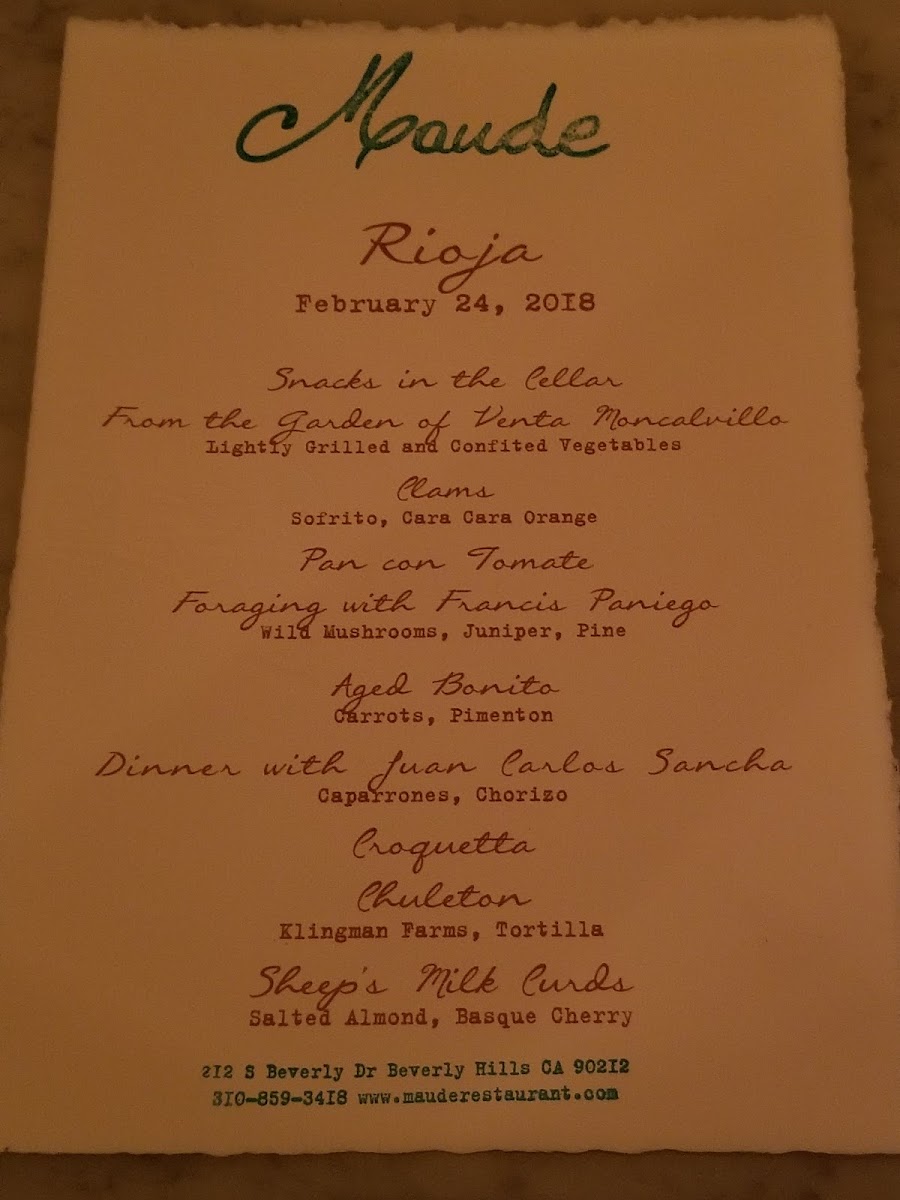 Maude
Rioja
February 24, 2018
Snacks in the Cellar
From the Garden of Venta Moncalvillo
Lightly Grilled and Confited Vegetables
Clams
Sofrito, Cara Cara Orange
Pan con Tomate
Foraging with Francis Paniego
Wild Mushrooms, Juniper, Pine
Aged Bonito
Carrots, Pimenton
Dinner with Juan Carlos Sancha
Caparrones, Chorizo
Croquetta
Chuleton
Klingman Farms, Tortilla
Sheep's Milk Curds
Salted Almond, Basque Cherry
212 S Beverly Dr Beverly Hills CA 90212
310-859-3418 www.mauderestaurant.com